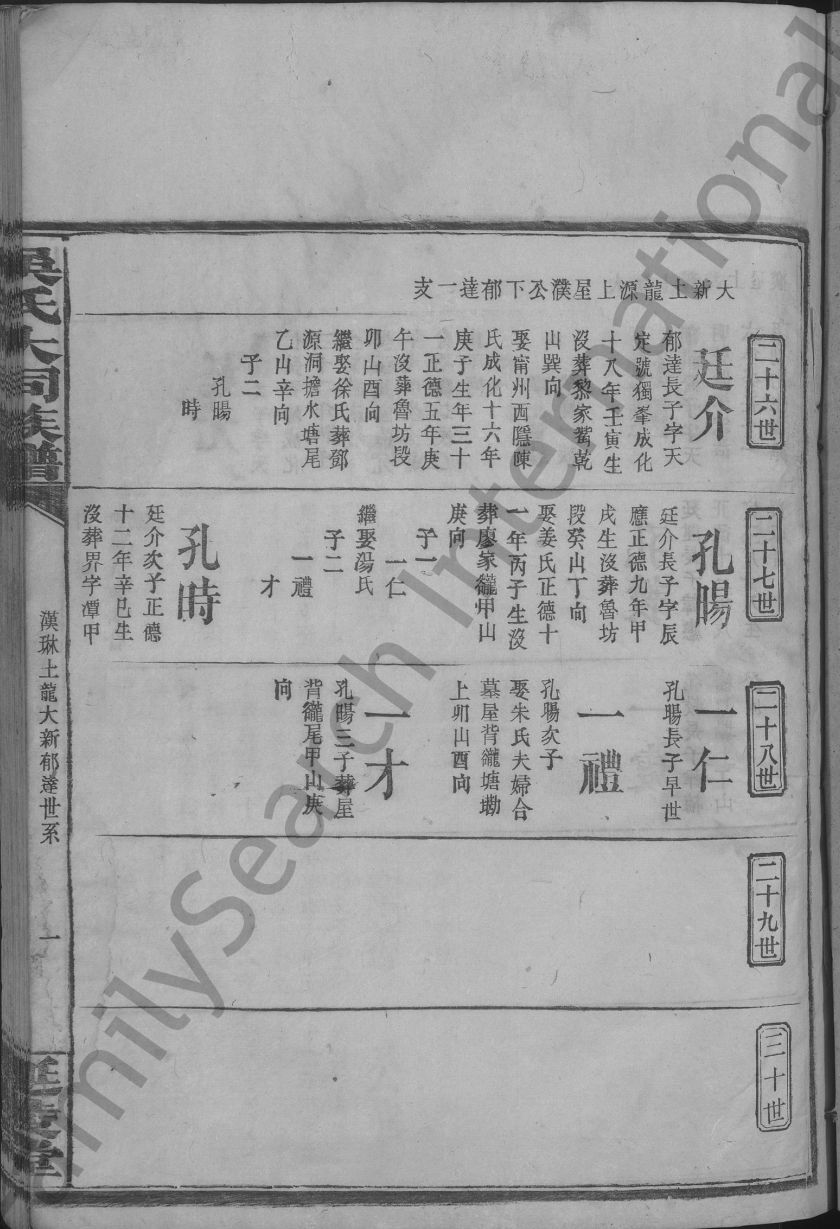 大新土龍源上屋濮公下郁達一支
二十六世
廷介
郁達長子字天
定號獨峯成化
十八年壬寅生
沒葬黎家嘴乾
山巽向
娶甯州西隱陳
氏成化十六年
庚子生年三十
一正德五年庚
午沒葬魯坊段
卯山酉向
繼娶徐氏葬鄧
源洞擔水塘尾
乙山辛向
子二
孔暘
時
二十七世
孔暘
廷介長子字辰
應正德九年甲
戌生沒葬魯坊
段癸山丁向
娶姜氏正德十
一年丙子生沒
葬廖家巃甲山
庚向
子一
一仁
繼娶湯氏
子二
一禮
才
孔時
廷介次子正德
十二年辛巳生
沒葬界字潭甲
二十八世
一仁
孔暘長子早世
一禮
孔暘次子
娶朱氏夫婦合
墓屋背巃塘墈
上卯山酉向
一才
孔暘三子葬屋
背巃尾甲山庚
向
二十九世
三十世
吳氏大同族譜
漢琳土龍大新郁達世系
一
延陵堂
FamilySearch International